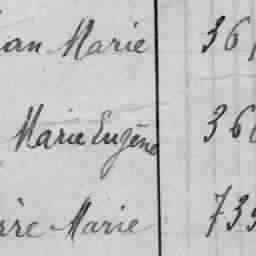 Marie 36
Marie Eugène 36
Marie 73